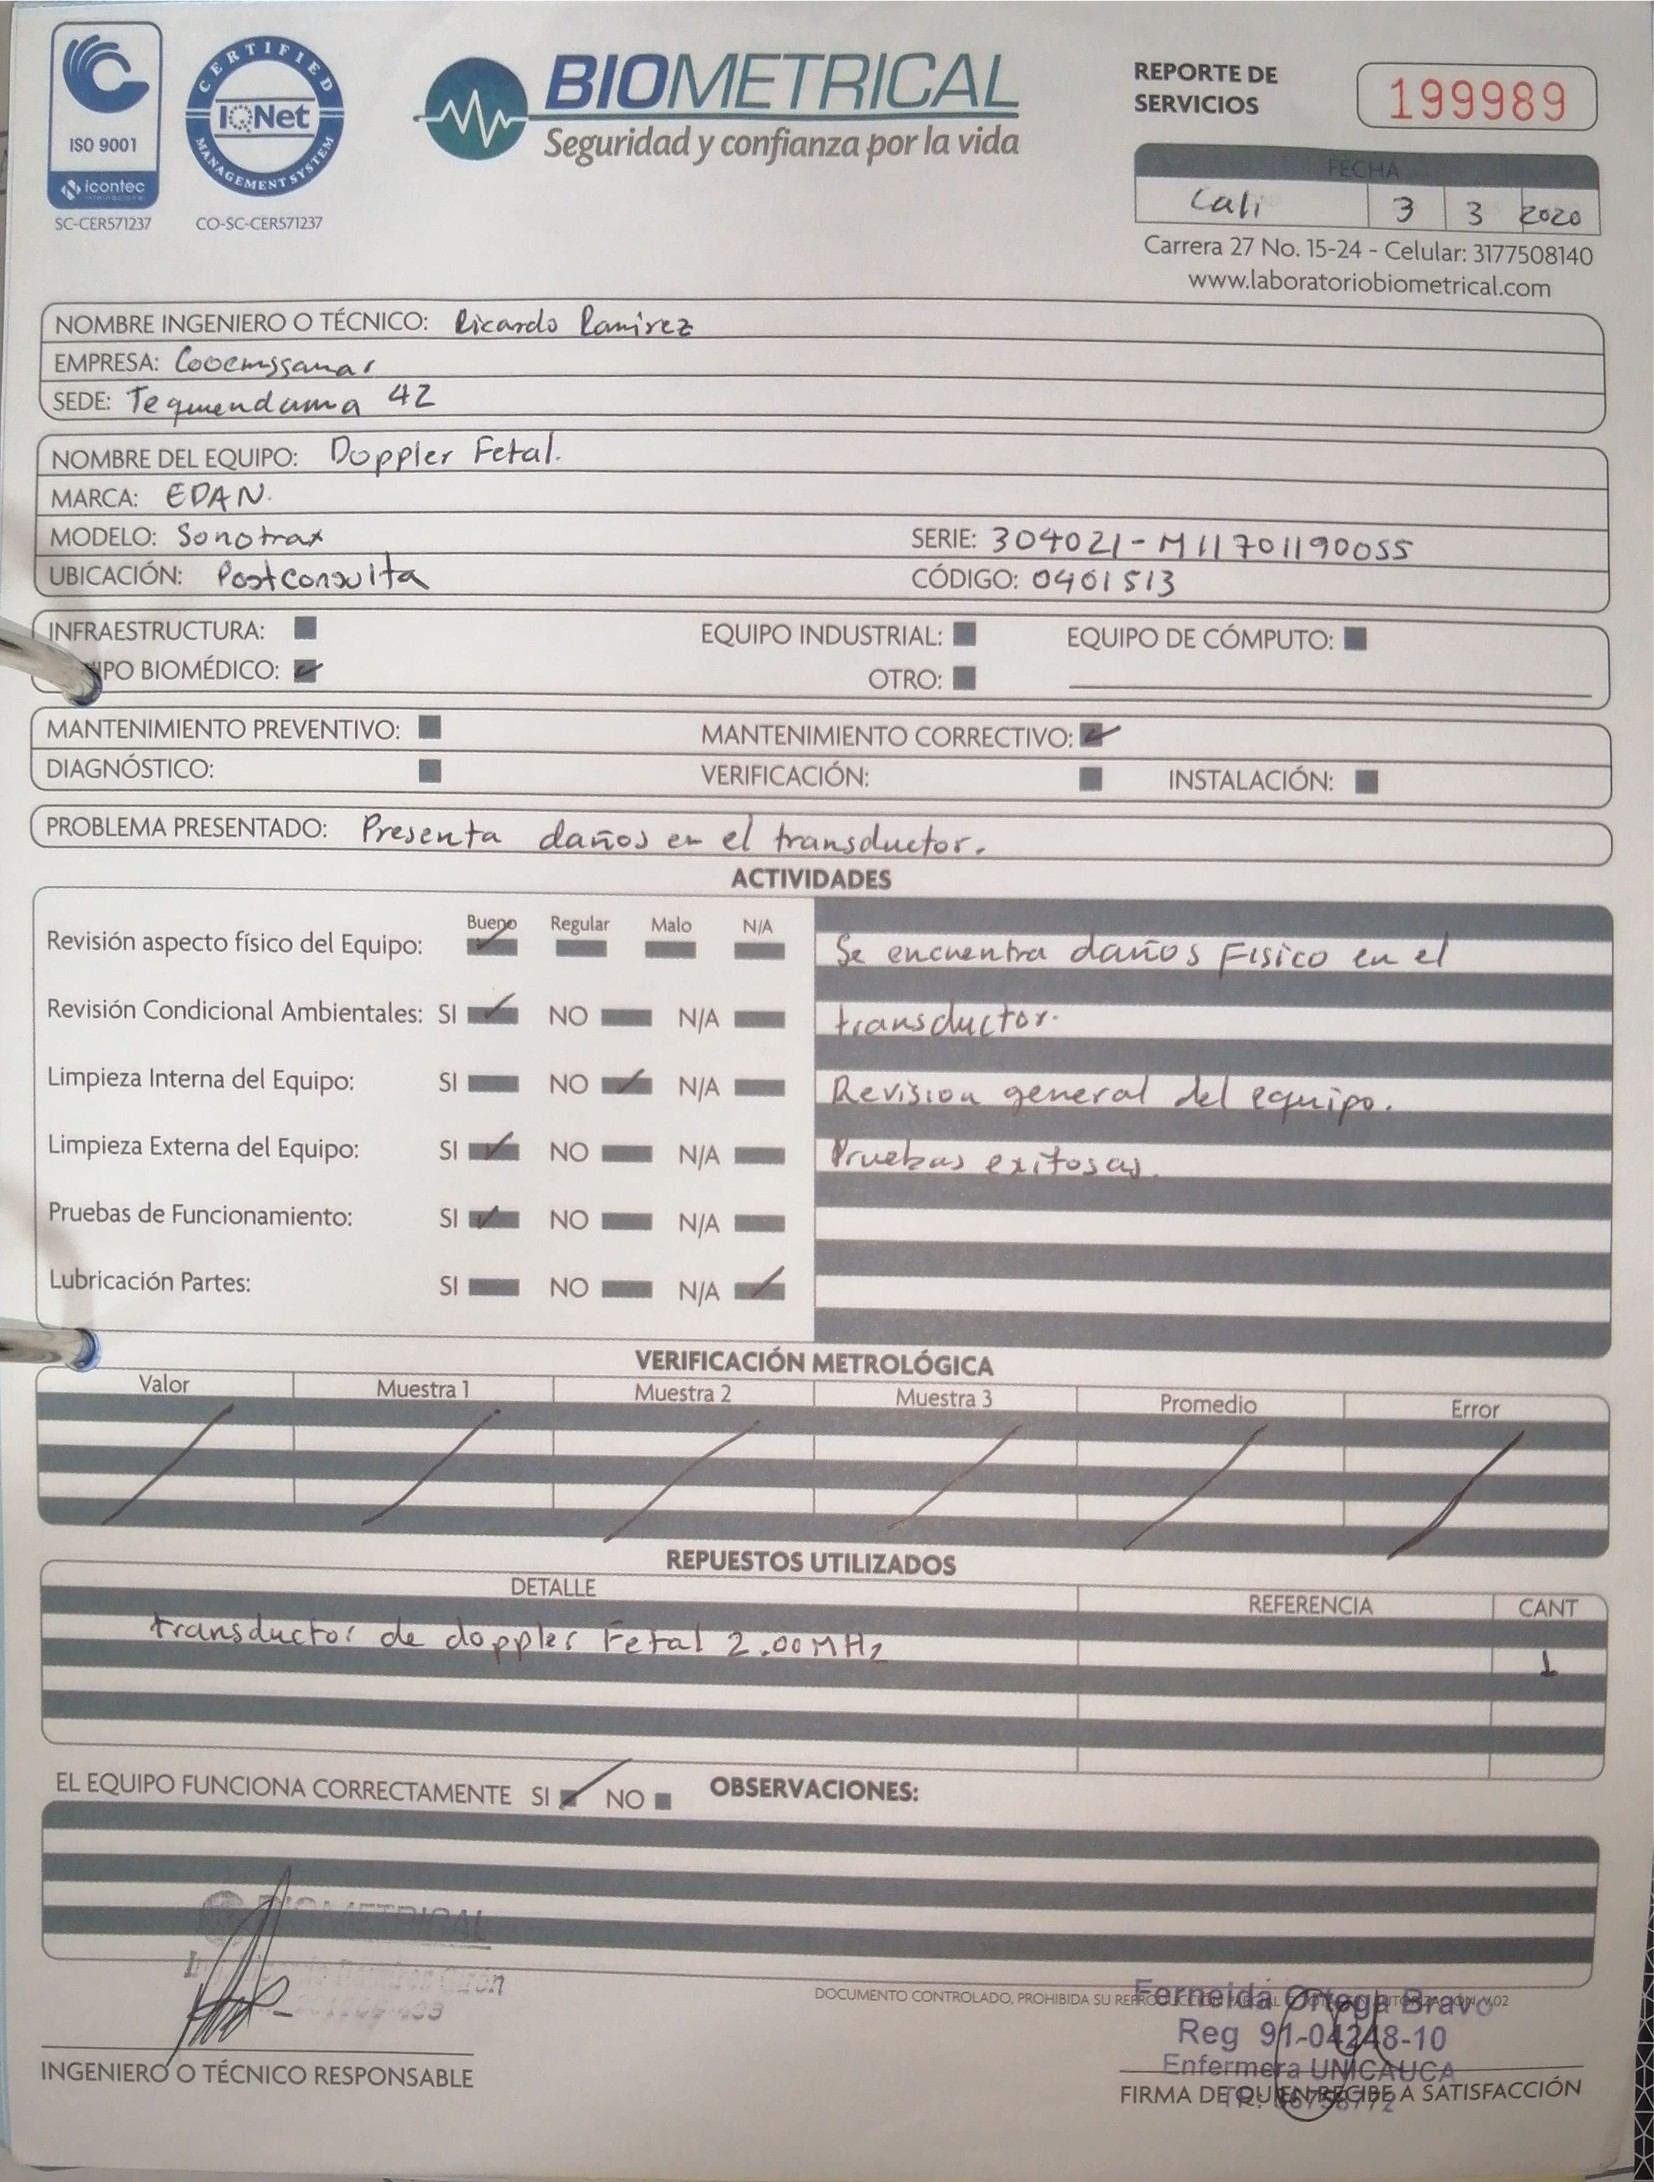 CERTIFIED
IQNet
MANAGEMENT SYSTEM
ISO 9001
icontec
internacional
SC-CER571237
CO-SC-CER571237
BIOMETRICAL
Seguridad y confianza por la vida
REPORTE DE
SERVICIOS
199989
FECHA
Cali 3 3 2020
Carrera 27 No. 15-24 - Celular: 3177508140
www.laboratoriobiometrical.com
NOMBRE INGENIERO O TÉCNICO: Ricardo Ramirez
EMPRESA: Cooemssanar
SEDE: Tequendama 42
NOMBRE DEL EQUIPO: Doppler Fetal.
MARCA: EDAN.
MODELO: Sonotrax SERIE: 304021-M11701190055
UBICACIÓN: Postconsulta CÓDIGO: 0401513
INFRAESTRUCTURA: EQUIPO INDUSTRIAL: EQUIPO DE CÓMPUTO:
IPO BIOMÉDICO: OTRO:
MANTENIMIENTO PREVENTIVO: MANTENIMIENTO CORRECTIVO:
DIAGNÓSTICO: VERIFICACIÓN: INSTALACIÓN:
PROBLEMA PRESENTADO: Presenta daños en el transductor.
ACTIVIDADES
Bueno Regular Malo N/A
Revisión aspecto físico del Equipo: Se encuentra daños Fisico en el
Revisión Condicional Ambientales: SI NO N/A transductor.
Limpieza Interna del Equipo: SI NO N/A Revision general del equipo.
Limpieza Externa del Equipo: SI NO N/A Pruebas exitosas.
Pruebas de Funcionamiento: SI NO N/A
Lubricación Partes: SI NO N/A
VERIFICACIÓN METROLÓGICA
Valor Muestra 1 Muestra 2 Muestra 3 Promedio Error
REPUESTOS UTILIZADOS
DETALLE REFERENCIA CANT
transductor de doppler Fetal 2.00MHz 1
EL EQUIPO FUNCIONA CORRECTAMENTE SI NO OBSERVACIONES:
BIOMETRICAL
DOCUMENTO CONTROLADO, PROHIBIDA SU
Ferneida Ortega Bravo
Reg 91-04248-10
Enfermera UNICAUCA
INGENIERO O TÉCNICO RESPONSABLE
FIRMA DE QUIEN RECIBE A SATISFACCIÓN